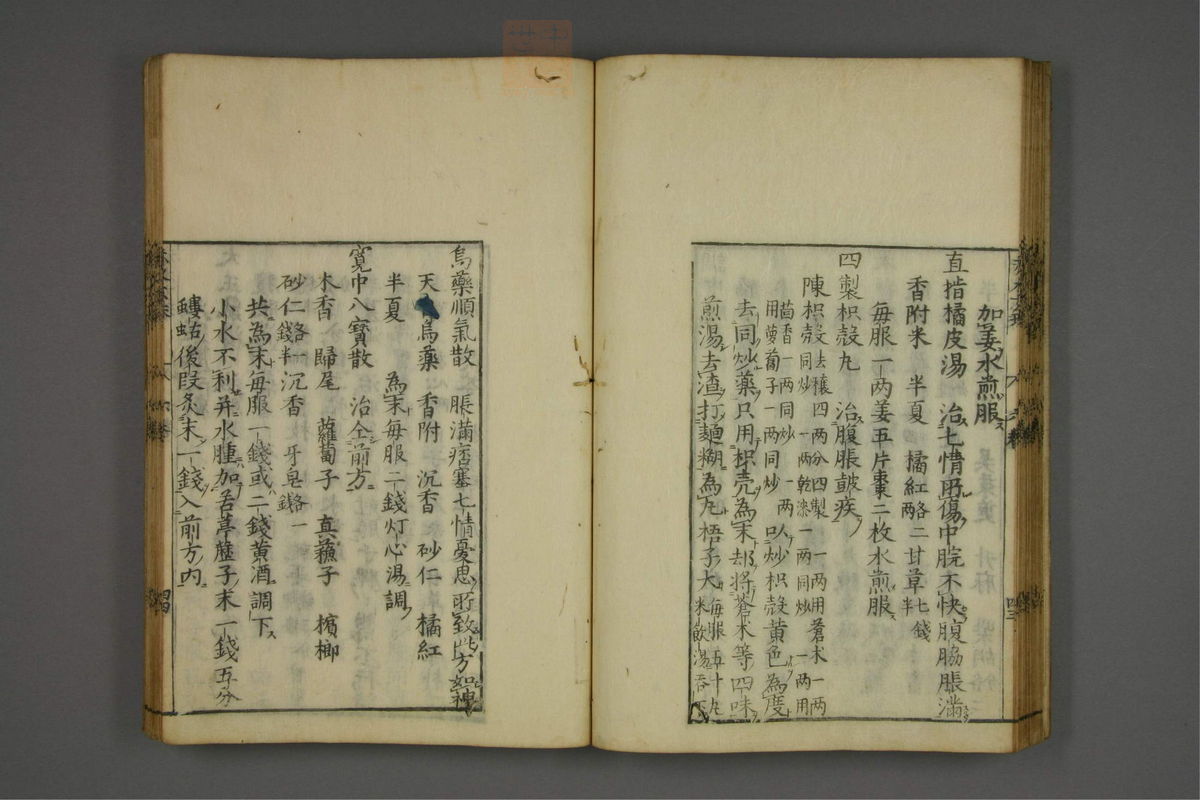 加姜水煎服
直指橘皮湯 治七情所傷中脘不快腹脇脹滿
香附米 半夏 橘紅各二兩 甘草七錢半
每服一兩姜五片棗二枚水煎服
四製枳殼丸 治腹脹鼓疾
陳枳殼去穰四兩分四製 一兩用蒼朮一兩同炒 一兩乾漆一兩同炒 一兩用
茴香一兩同炒 一兩用蘿蔔子一兩同炒 以炒枳殼黃色為度
去同炒藥只用枳壳為末却將蒼朮等四味
煎湯去渣打麵糊為丸梧子大每服五十丸米飲湯吞下
烏藥順氣散 脹滿痞塞七情憂思所致此方如神
天 烏藥 香附 沉香 砂仁 橘紅
半夏 為末每服二錢灯心湯調
寬巾八寶散 治仝前方
木香 歸尾 蘿蔔子 真蘇子 檳榔
砂仁各一錢半 沉香 牙皂各一錢
共為末每服一錢或二錢黃酒調下
小水不利并水腫加苦葶藶子末一錢五分
螻蛄後段炙末一錢入前方内